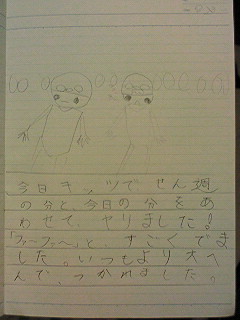 今日キッツで、せん週
の分と今日の分をあ
わせて、ヤリました!
「ファ〜ファ〜」と、すごくでま
した。いつもより大へ
んで、つかれました。